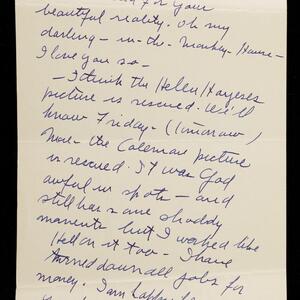 for your
beautiful reality. Oh my
darling - in - the - Monkey - House -
I love you so -
- I think the Helen Hayeses
picture is rescued. We'll
know Friday - (tomorrow)
the Coleman picture
is rescued. It was God
awful in spots - and
still has some shoddy
moments but I worked like
Hell on it too - I have
turned down all jobs for
money. I am